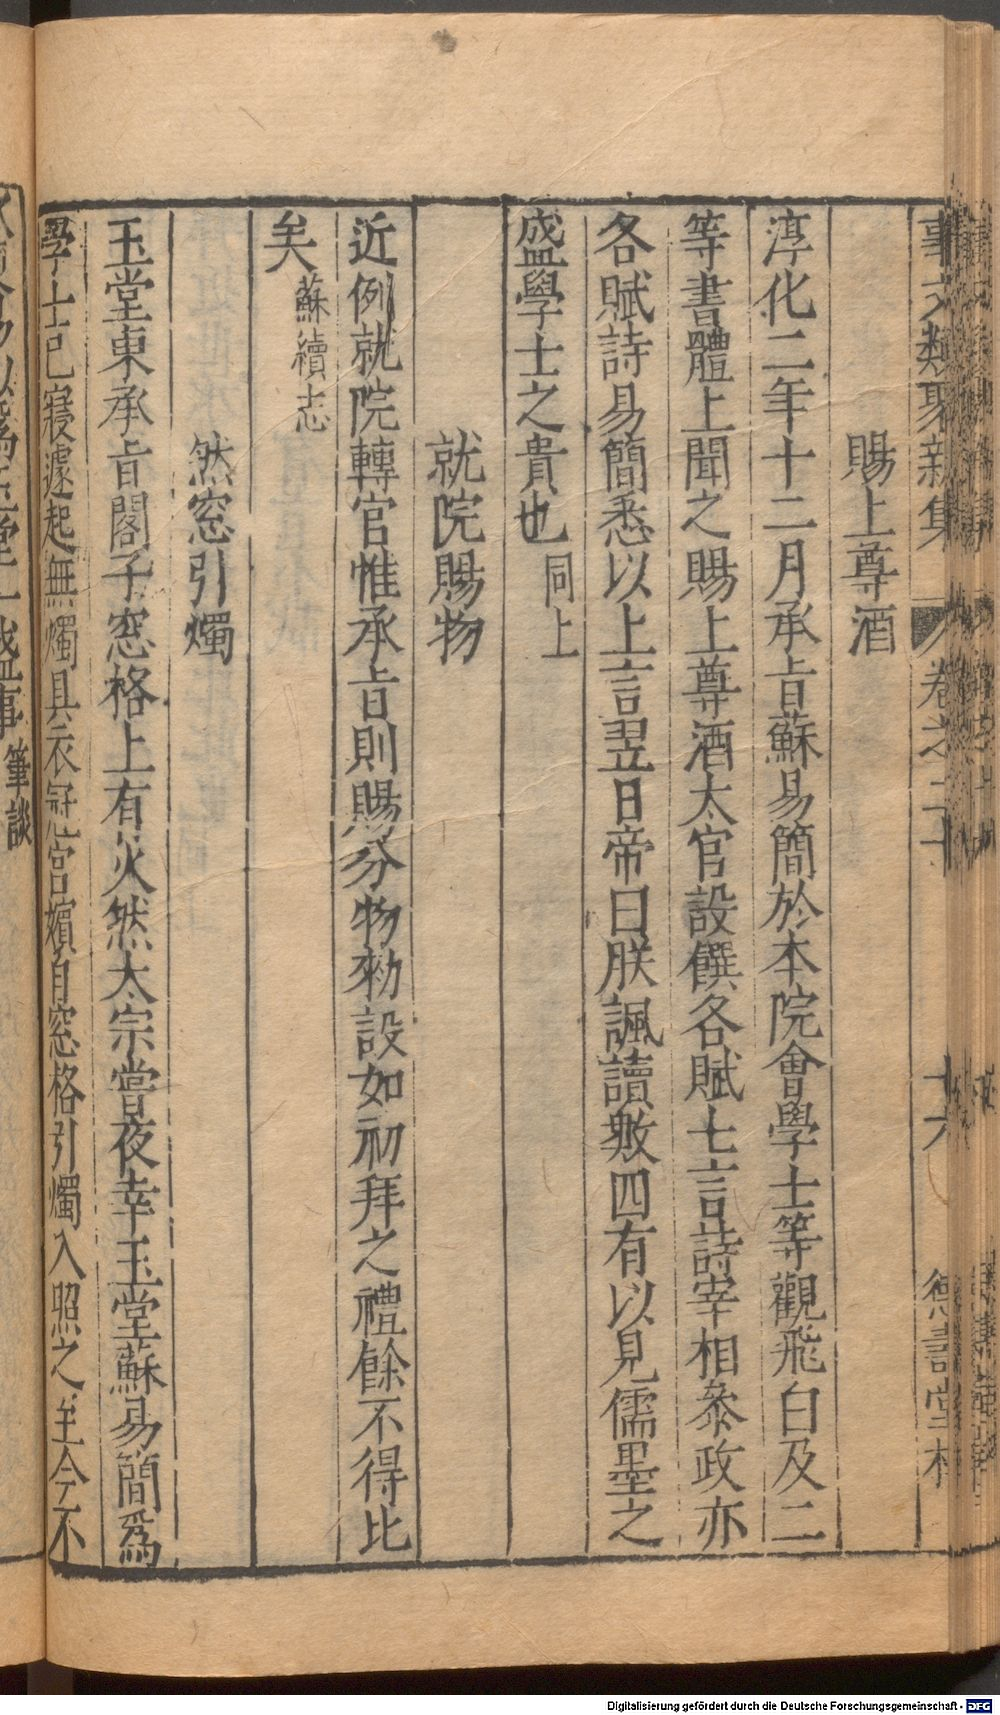 事文類聚新集 卷之二十 十六 德壽堂梓
賜上尊酒
淳化二年十二月承旨蘇易簡於本院會學士等觀飛白及二
等書體上聞之賜上尊酒太官設饌各賦七言詩宰相叅政亦
各賦詩易簡悉以上言翌日帝曰朕諷讀數四有以見儒墨之
盛學士之貴也 同上
就院賜物
近例就院轉官惟承旨則賜分物勑設如初拜之禮餘不得比
矣 蘇續志
然窓引燭
玉堂東承旨閣子窓格上有火然太宗嘗夜幸玉堂蘇易簡爲
學士已寢遽起無燭具衣冠宮嬪自窓格引燭入照之至今不
玉堂一盛事 筆談
Digitalisierung gefördert durch die Deutsche Forschungsgemeinschaft - DFG